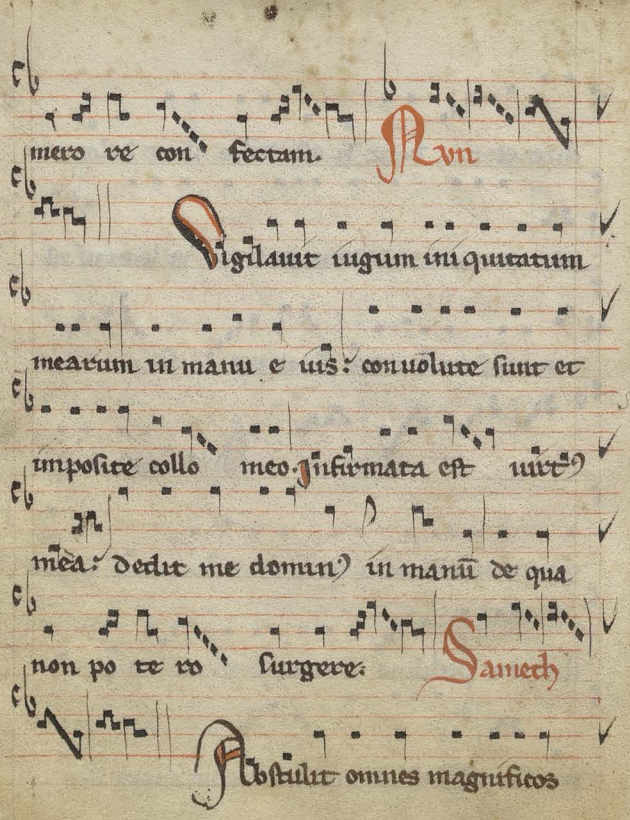 mero re con fectam. Nun
Vigilavit iugum iniquitatum
mearum in manu e ius: convolute sunt et
imposite collo meo. Infirmata est virtꝰ
mea: dedit me dominꝰ in manū de qua
non po te ro surgere: Samech
Abstulit omnes magnificos